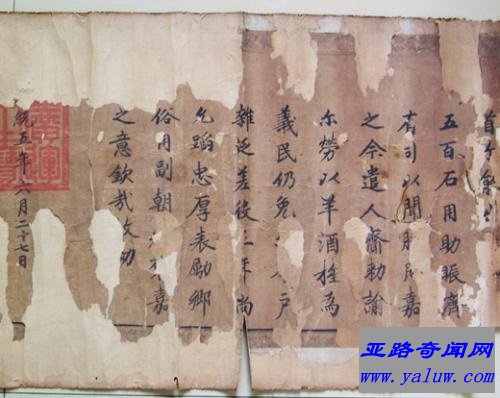 五百石用助賑濟
有司以聞朕嘉
之今遣人齎勑諭
尔勞以羊酒旌為
義民仍免戶
雜泛差役年尚
允蹈忠厚表勵鄉
俗用副朝嘉
之意欽哉故勑
統五年六月二十七日
廣運
之寶
亚路奇闻网
www.yaluw.com